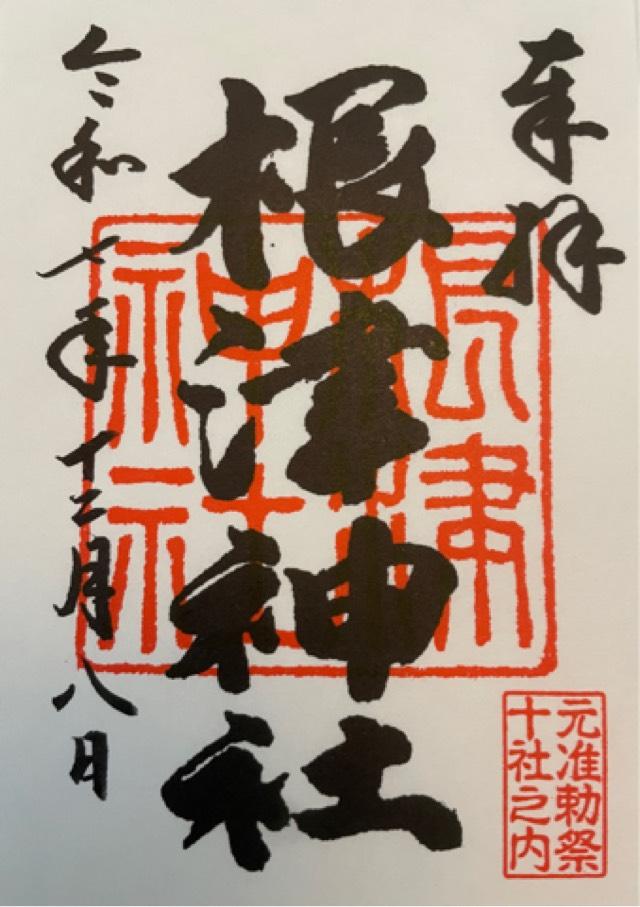 奉拝
根津神社
令和七年十二月八日
根津神社
元准勅祭
十社之内